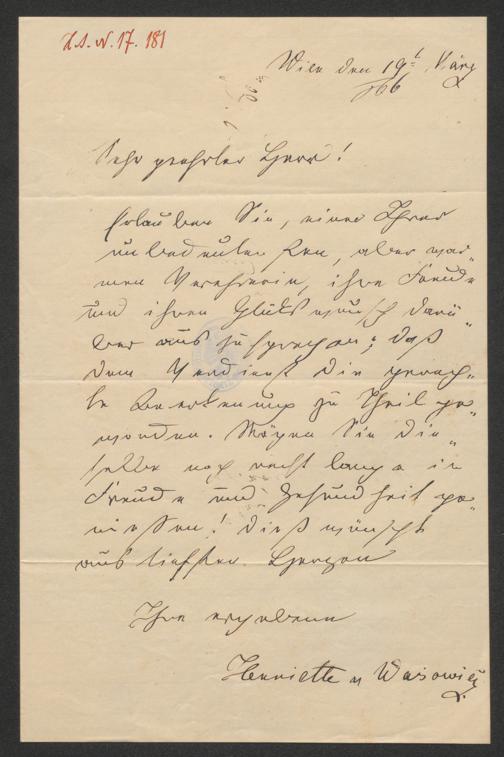 H.I.N. 17.181
Wien den 19t März
866
Sehr geehrter Herr!
Erlauben Sie, einer Ihrer
unbedeutensten, aber war-
men Verehrerin, ihre Freude
und ihren Glückswunsch darü-
ber auszusprechen; daß
dem Verdienst die gerech-
te Anerkennung zu Theil ge-
worden. Mögen Sie die-
selbe noch recht lange in
Freude und Gesundheit ge-
niessen! Dieß wünscht
aus tiefsten Herzen
Ihre ergebene
Henriette v Wasowicz